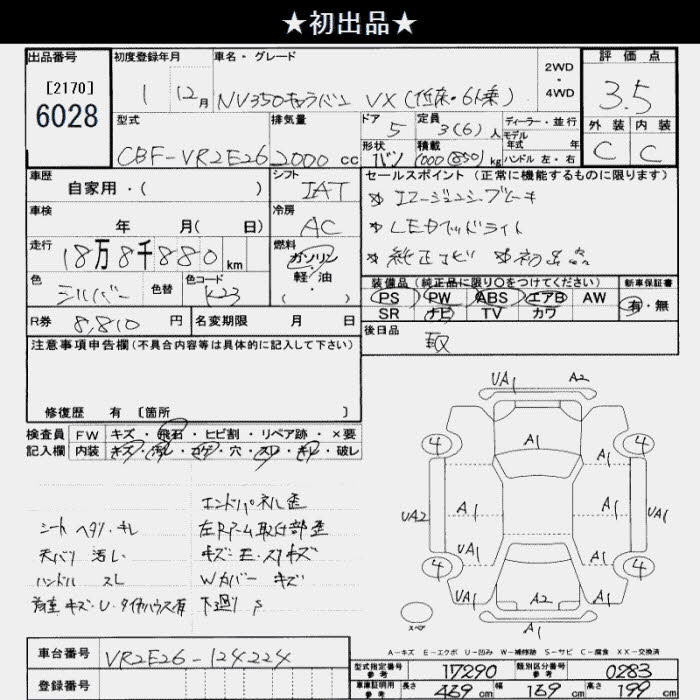 ★初出品★
出品番号 初度登録年月 車名・グレード 2WD・4WD 評価点
[2170] 6028 1 12月 NV350キャラバン VX(低床・6人乗) 3.5
型式 排気量 ドア 5 定員 3(6)人 ディーラー・並行 外装 内装
モデル年式 年
CBF-VR2E26 2000cc 形状 バン 積載 kg ハンドル 左・右 C C
車歴 シフト セールスポイント (正常に機能するものに限ります)
自家用・( ) IAT
＊エマージェンシーブレーキ
車検 冷房
年 月( 日) AC ＊LEDヘッドライト
走行 燃料
18万8千880km ガソリン ＊純正ナビ ＊初出品
軽・油
( ・ )
色 色替 色コード 装備品 (純正品に限り○をつけてください) 新車保証書
シルバー K23 PS PW ABS エアB AW 有・無
SR ナビ TV カワ
R券 8,810円 名変期限 月 日 後日品 取
注意事項申告欄(不具合内容等は具体的に記入して下さい)
修復歴 有 [箇所 ]
検査員 FW キズ・飛石・ヒビ割・リペア跡・×要
記入欄 内装 キズ・汚レ・コゲ・穴・スレ・キレ・破レ
エンドパネル歪
シート ヘタリ・キレ
天バリ 汚レ
キズ・エ・スリキズ
ハンドル スレ Wカバー キズ
下廻り S
UA1 A2
4 A1 4
A1 A1
UA2 A1 A1 UA1
UA1 A1
4 4
UA1 A2 A1
A1
スペア
A-キズ E-エクボ U-凹み W-補修跡 S-サビ C-腐食 XX-交換済
車台番号 VR2E26-124224
登録番号
型式指定番号 参考 17290 類別区分番号 参考 0283
車庫証明用 参考 長さ 469cm 幅 169cm 高さ 199cm